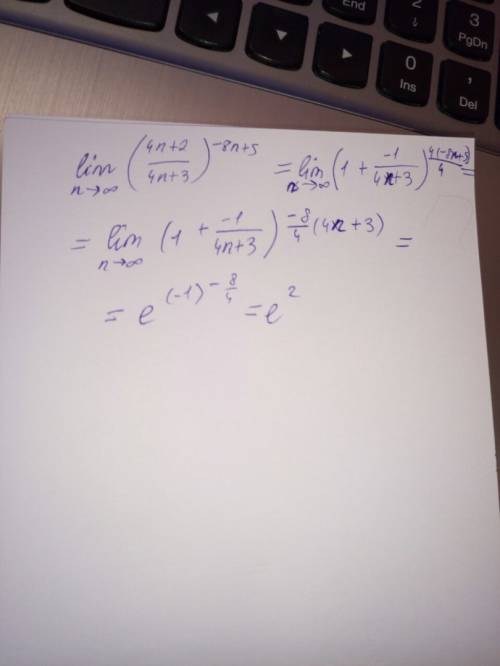 End
2
↓
3
PgDn
0
Ins
,
Del
lim n→∞ ((4n+2)/(4n+3))^(-8n+5) = lim n→∞ (1 + (-1)/(4n+3))^(4(-8n+5)/4) =
= lim n→∞ (1 + (-1)/(4n+3))^((-8/4)(4n+3)) =
= e^((-1) - 8/4) = e^2